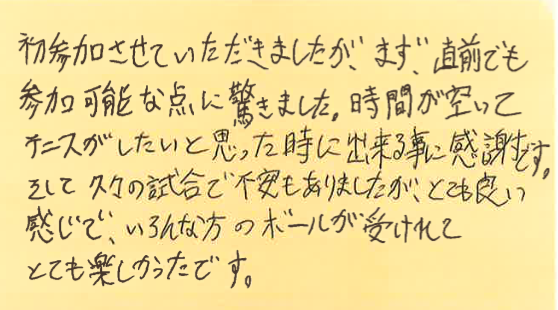 初参加させていただきましたが、まず、直前でも
参加可能な点に驚きました。時間が空いて
テニスがしたいと思った時に出来る事に感謝です。
そして久々の試合で不安もありましたが、とても良い
感じで、いろんな方のボールが受けれて
とても楽しかったです。